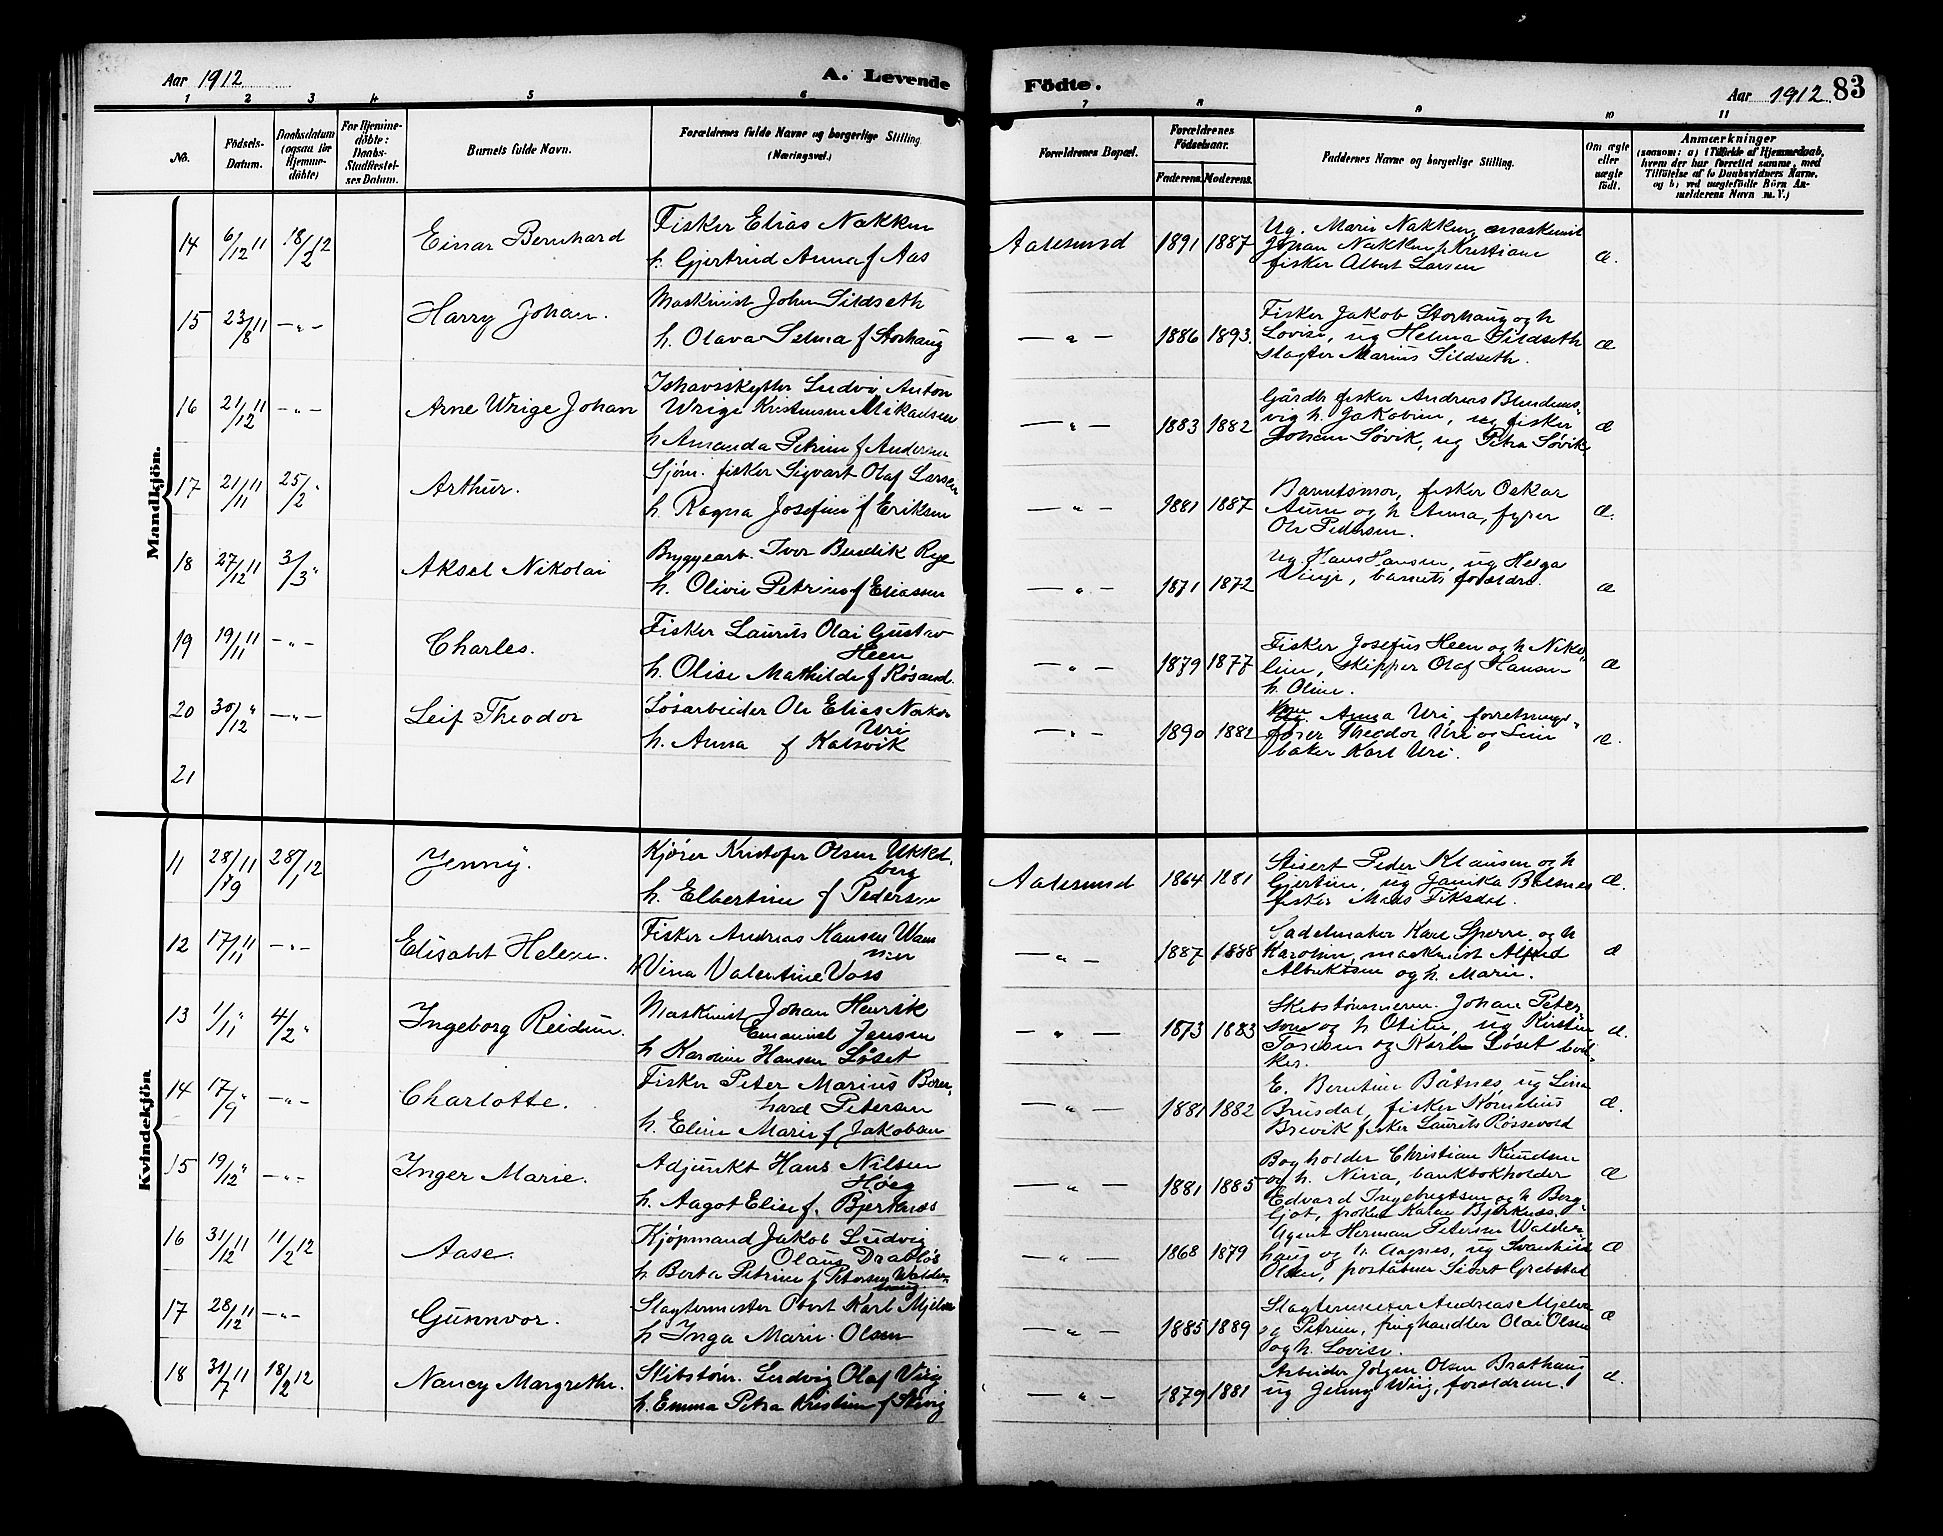 Aar 1912
A. Levende
Födte.
Aar 1912 83
1 2 3 4 5 6 7 8 9 10 11
No.
Födsels-
Datum.
Daabsdatum
(ogsaa for
Hjemme-
döbte)
For Hjemme-
döbte:
Daabs-
Stadfæstel-
ses Datum.
Barnets fulde Navn.
Forældrenes fulde Navne og borgerlige Stilling
(Næringsvei.)
Forældrenes Bopæl.
Forældrenes
Födselsaar.
Faderens. Moderens.
Faddernes Navne og borgerlige Stilling.
Om ægte
eller
uægte
födt.
Anmærkninger
(saasom: a) i Tilfælde af Hjemmedaab,
hvem der har forrettet samme, med
Tilföielse af to Daabsvidners Navne,
og b) ved uægtefödte Börn An-
melderens Navn m. V.)
Mandkjön.
14 6/12 11 18/2 12 Einar Bernhard
Fisker Elias Nakken
h. Gjertrud Anna f Aas
Aalesund 1891 1887
Ug. Marie Nakken, maskinist
Johan Nakken, h Kristiane
fisker Albert Larsen
æ.
15 23/8 11 -"- Harry Johan.
Maskinist John Sildseth
h. Olava Selma f Storhaug
-"- 1886 1893.
Fisker Jakob Storhaug og h
Lovise, ug Helma Sildseth
slagter Marius Sildseth.
æ
16 21/12 11 -"- Arne Wrige Johan
Ishavsskytter Ludvi Anton
Wrige Kristensen Mikalsen
h Amanda Petrine f Andersen
-"- 1883 1882
Gårdbr fisker Andreas Blindems-
vig h. Jakobine, ug fisker
Johan Søvik, ug Petra Søvik
æ
17 21/11 11 25/2 " Arthur.
Sjøm. fisker Sigvart Olaf Larsen
h. Ragna Josefine f Eriksen
-"- 1881 1887
Barnetsmor, fisker Oskar
Aune og h Anna, fyrer
Ole Pedersen.
æ.
18 27/12 11 3/3 " Aksel Nikolai
Bryggearb. Iver Bendik Rye
h. Olivie Petrine f Eliassen
-"- 1871 1872
Ug Hans Hansen, ug Helga
Vinje, barnets forældre.
æ
19 19/11 11 -"- Charles.
Fisker Laurits Olai Gustav
Heen
h. Olise Mathilde f Røsand.
-"- 1879 1877
Fisker Josefus Heen og h Niko-
line, skipper Olaf Hansen
h. Oline.
æ
20 30/12 " -"- Leif Theodor
Løsarbeider Ole Elias Nekor
Uri
h. Anna f Kalsvik
-"- 1890 1882
Anna Uri, forretnings-
fører Theodor Uri og Line
baker Karl Uri.
æ.
21
Kvindekjön
11 28/9 11 28/1 12 Jenny.
Kjører Kristofer Olsen Ukkel-
berg
h. Elbertine f Pedersen
Aalesund 1864 1881
Stuert Peder Klausen og h
Gjertine, ug Janika Balsnes
fisker Mads Fiksdal.
æ.
12 17/11 11 -"- Elisabet Helene.
Fisker Andreas Hansen Wam
men
h Vina Valentine Voss
-"- 1887 1888
Sadelmaker Karl Sperre og h
Karoline, maskinist Alfred
Albrektsen og h. Marie.
æ
13 1/11 " 4/2 " Ingeborg Reidun.
Maskinist Johan Henrik
Emanuel Jensen
h Karoline Hansen Løset
-"- 1873 1883
Skibstømmerm. Johan Peter-
sen og h Otilie, ug Kirstine
og Karl Løset bød-
ker.
æ.
14 17/9 " -"- Charlotte.
Fisker Peter Marius Bern-
hard Petersen
h. Eline Marie f Jakobsen
-"- 1881 1882
E. Berntine Båtnes, ug Lina
Brusdal, fisker Kornelius
Brevik fisker Laurits Røssevold
æ.
15 19/12 " -"- Inger Marie.
Adjunkt Hans Nilsen
Høeg
h. Aagot Elise f. Bjerknes
-"- 1881 1885
Bogholder Christian Knudsen
og h. Nina, bankbokholder
Edvard Ingebrigtsen og h Berg-
ljot, frøken Karen Bjerknes.
æ
16 31/12 11 11/2 12 Aase.
Kjøpmand Jakob Ludvig
Olaus Drabløs
h Berta Petrine f Petersen Walder-
haug
-"- 1868 1879
Agent Herman Petersen Walder
haug og h. Aagnes, ug Svanhild
Olsen, postaabner Sivert Grebstad
æ
17 28/12 11 -"- Gunnvor.
Slagtermester Obert Karl Mjelva
h Inga Marie Olsen
-"- 1885 1889
Slagtermester Andreas Mjelva
og Petrine, finghandler Olai Olsen
og h. Lovise.
æ
18 31/7 11 18/2 12 Nancy Margrethe.
Skibstøm. Ludvig Olaf Viig
h. Emma Petra Kristine f Stavig
-"- 1879 1881
Arbeider Jørgen Olsen Brathaug
ug Jenny Wiig, forældrene.
æ.